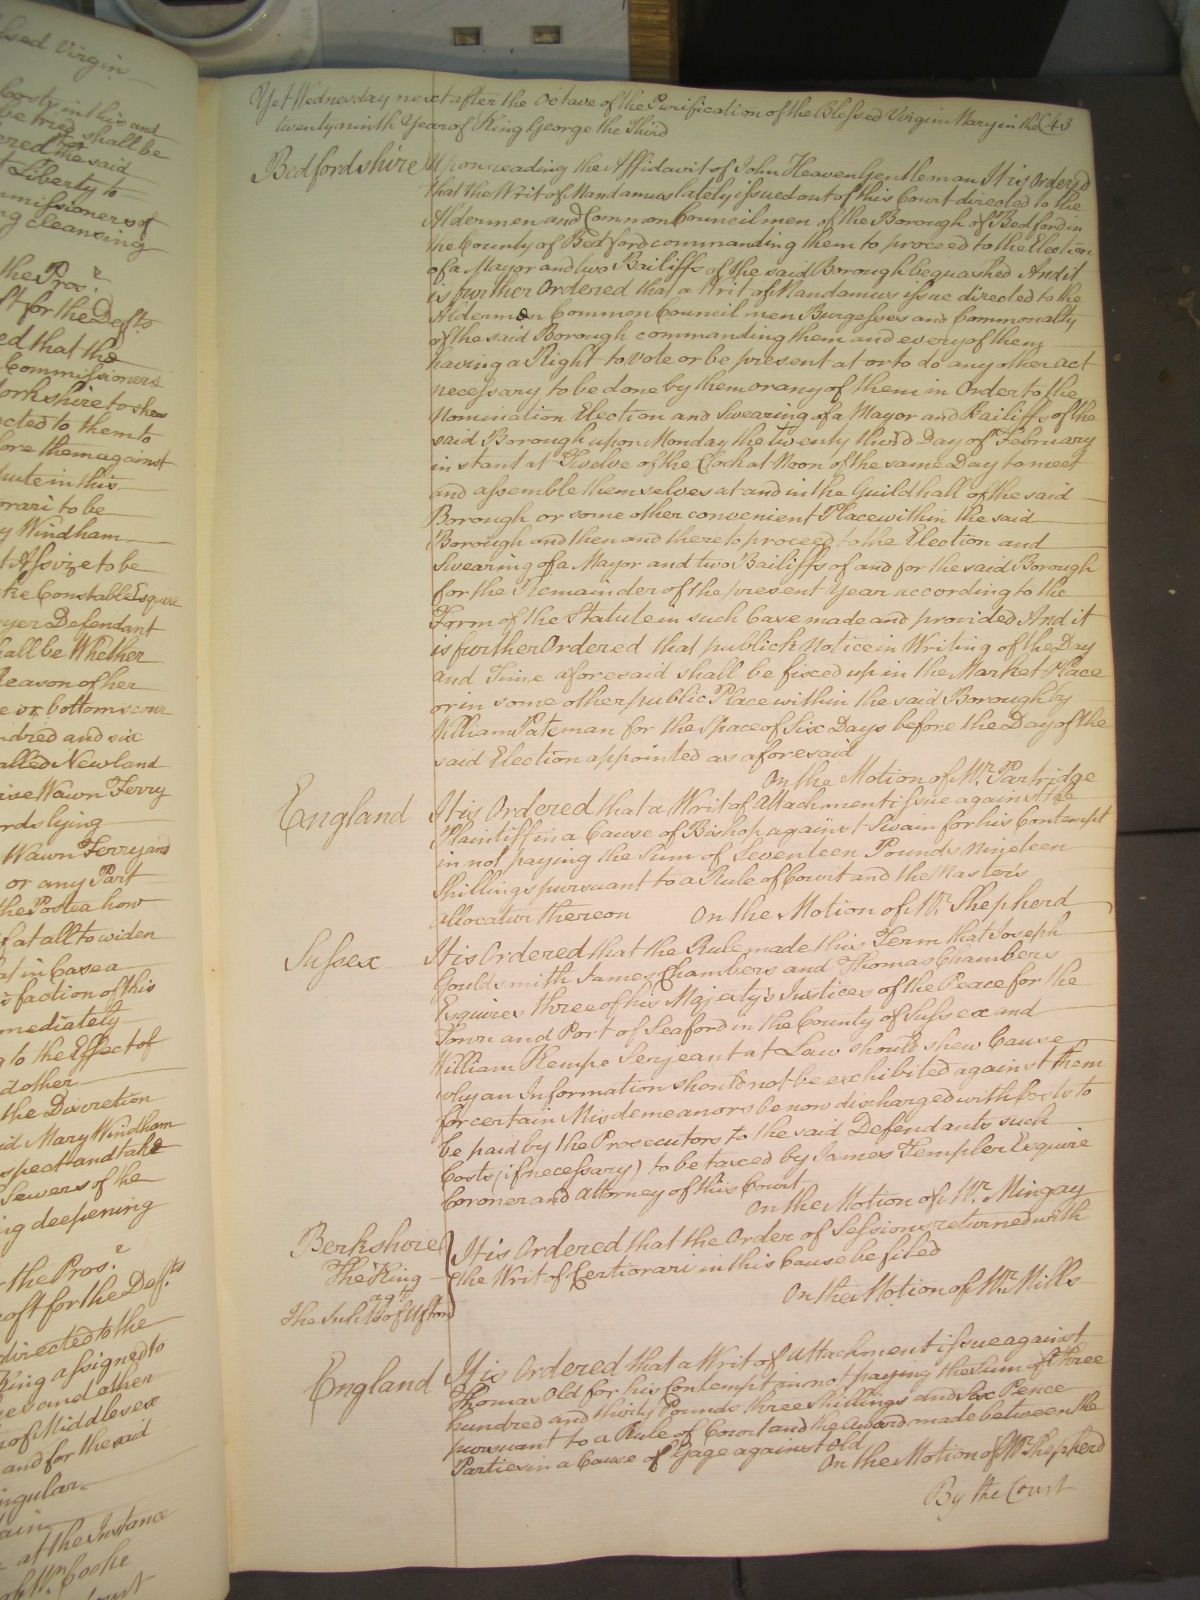 ssed Virgin
Costs in this and
be tried shall be
ered the said
t Liberty to
ommissioners of
ng cleansing
the Pros.r
ft for the Defts
ed that the
Commissioners
Yorkshire to shew
ected to them to
fore them against
ute in this
orari to be
y Windham
t Assize to be
ke Constable Esquire
yer Defendant
hall be Whether
Reason of her
e or bottom scour
ndred and six
alled Newland
ise Wawn Ferry
rds lying
Wawn Ferry and
or any Part
the Postea how
if at all to widen
at in Case a
isfaction of this
mediately
g to the Effect of
d other
the Discretion
id Mary Windham
spect and take
Sewers of the
ng deepening
the Pros.e
oft for the Def.ts
directed to the
King assigned to
es and other
of Middlesex
and for the said
ingular
ain
at the Instance
Court
Yet Wednesday next after the Octave of the Purification of the Blessed Virgin Mary in the 43
twenty ninth Year of King George the Third
Bedfordshire Upon reading the Affidavit of John Heaven Gentleman It is Ordered
that the Writ of Mandamus lately issued out of this Court directed to the
Aldermen and Common Council men of the Borough of Bedford in
the County of Bedford commanding them to proceed to the Election
of a Mayor and two Bailiffs of the said Borough be quashed And it
is further Ordered that a Writ of Mandamus issue directed to the
Aldermen Common Council men Burgesses and Commonalty
of the said Borough commanding them and every of them
having a Right to vote or be present at or to do any other act
necessary to be done by them or any of them in Order to the
Nomination Election and Swearing of a Mayor and Bailiffs of the
said Borough upon Monday the twenty third Day of February
instant at Twelve of the Clock at Noon of the same Day to meet
and assemble themselves at and in the Guildhall of the said
Borough or some other convenient Place within the said
Borough and then and there to proceed to the Election and
Swearing of a Mayor and two Bailiffs of and for the said Borough
for the Remainder of the present Year according to the
Form of the Statute in such Case made and provided And it
is further Ordered that publick Notice in Writing of the Day
and Time aforesaid shall be fixed up in the Market Place
or in some other public Place within the said Borough by
William Pateman for the Space of Six Days before the Day of the
said Election appointed as aforesaid
On the Motion of Mr. Partridge
England It is Ordered that a Writ of Attachment issue against the
Plaintiff in a Cause of Bishop against Swain for his Contempt
in not paying the Sum of Seventeen Pounds Nineteen
Shillings pursuant to a Rule of Court and the Master's
allocatur thereon On the Motion of Mr. Shepherd
Sussex It is Ordered that the Rule made this Term that Joseph
Gouldsmith James Chambers and Thomas Chambers
Esquires three of his Majesty's Justices of the Peace for the
Town and Port of Seaford in the County of Sussex and
William Kempe Serjeant at Law should shew Cause
why an Information should not be exhibited against them
for certain Misdemeanors be now discharged with Costs to
be paid by the Prosecutors to the said Defendants such
Costs (if necessary) to be taxed by James Templer Esquire
Coroner and Attorney of this Court
On the Motion of Mr. Mingay
Berkshire It is Ordered that the Order of Sessions returned with
The King the Writ of Certiorari in this Cause be filed
agt
The Inhts of Ufton On the Motion of Mr. Mills
England It is Ordered that a Writ of Attachment issue against
Thomas Old for his Contempt in not paying the Sum of three
hundred and thirty Pounds three Shillings and Six Pence
pursuant to a Rule of Court and the award made between the
Parties in a Cause of Gage against Old
On the Motion of Mr. Shepherd
By the Court